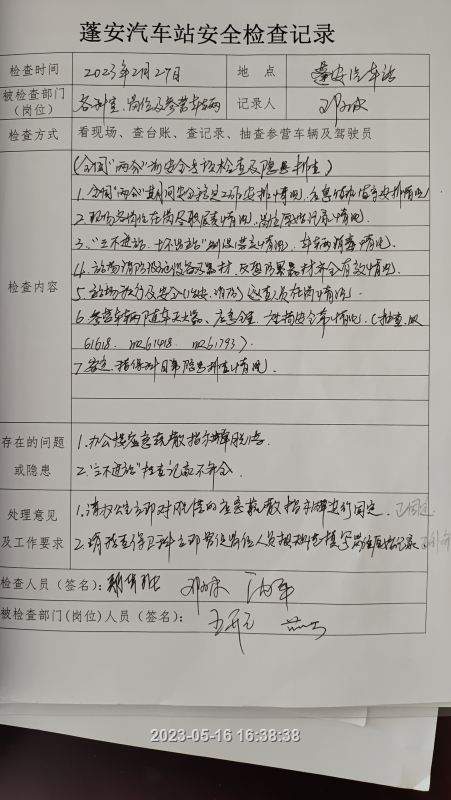 蓬安汽车站安全检查记录
检查时间 2023年2月27日 地 点 蓬安汽车站
被检查部门（岗位） 各科室、岗位及参营车辆 记录人
检查方式 看现场、查台账、查记录、抽查参营车辆及驾驶员
检查内容
（全国"两会"前安全专项检查及隐患排查）
1.全国"两会"期间安全稳定工作安排情况，应急值班值守安排情况
2.现场各岗位在岗尽职履责情况，岗位原始记录情况。
3."三不进站、六不出站"制度落实情况，车辆消毒情况。
4.站场消防设施设备及器材、反恐防暴器材齐全有效情况。
5.站场治安及安全（治安、消防）巡查人员在岗情况。
6.参营车辆随车灭火器、应急锤、座椅安全带情况。（抽查
61618. 61418. 61793）
7.客运、稽保科日常隐患排查情况。
存在的问题或隐患
1.办公楼应急疏散指示牌脱落。
2."三不进站"检查记录不齐全。
处理意见及工作要求
1.请办公室立即对脱落的应急疏散指示牌进行固定。
2.请稽查保卫科立即督促岗位人员按规范填写岗位原始记录。
检查人员（签名）：
被检查部门（岗位）人员（签名）：
2023-05-16 16:38:38